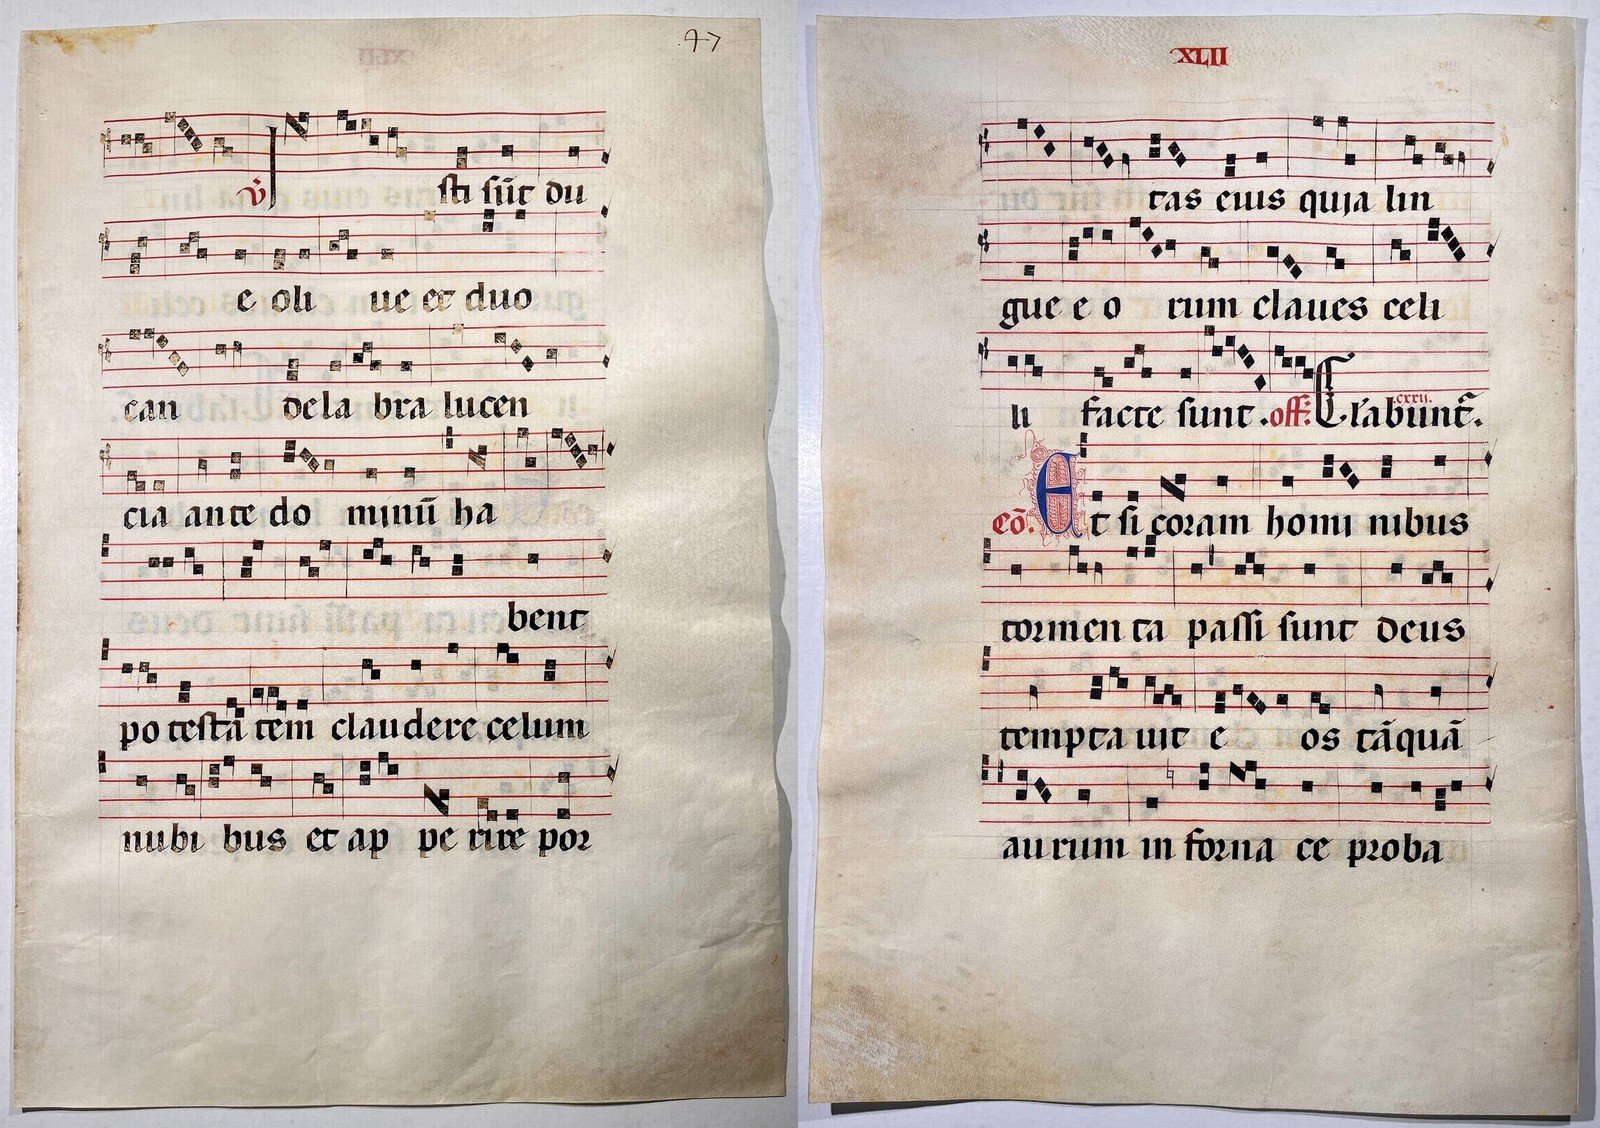 47
℣ Isti sūt du
e oli ue et duo
can dela bra lucen
cia ante do minū ha
bent
po testa tem claudere celum
nubi bus et ap pe rire por
XLII
tas eius quia lin
gue e o rum claues celi
li facte sunt .off. Gl'abunt̄.
cxxii.
cō. Et si coram homi nibus
tormen ta passi sunt deus
tempta uit e os tāquā
aurum in forna ce proba